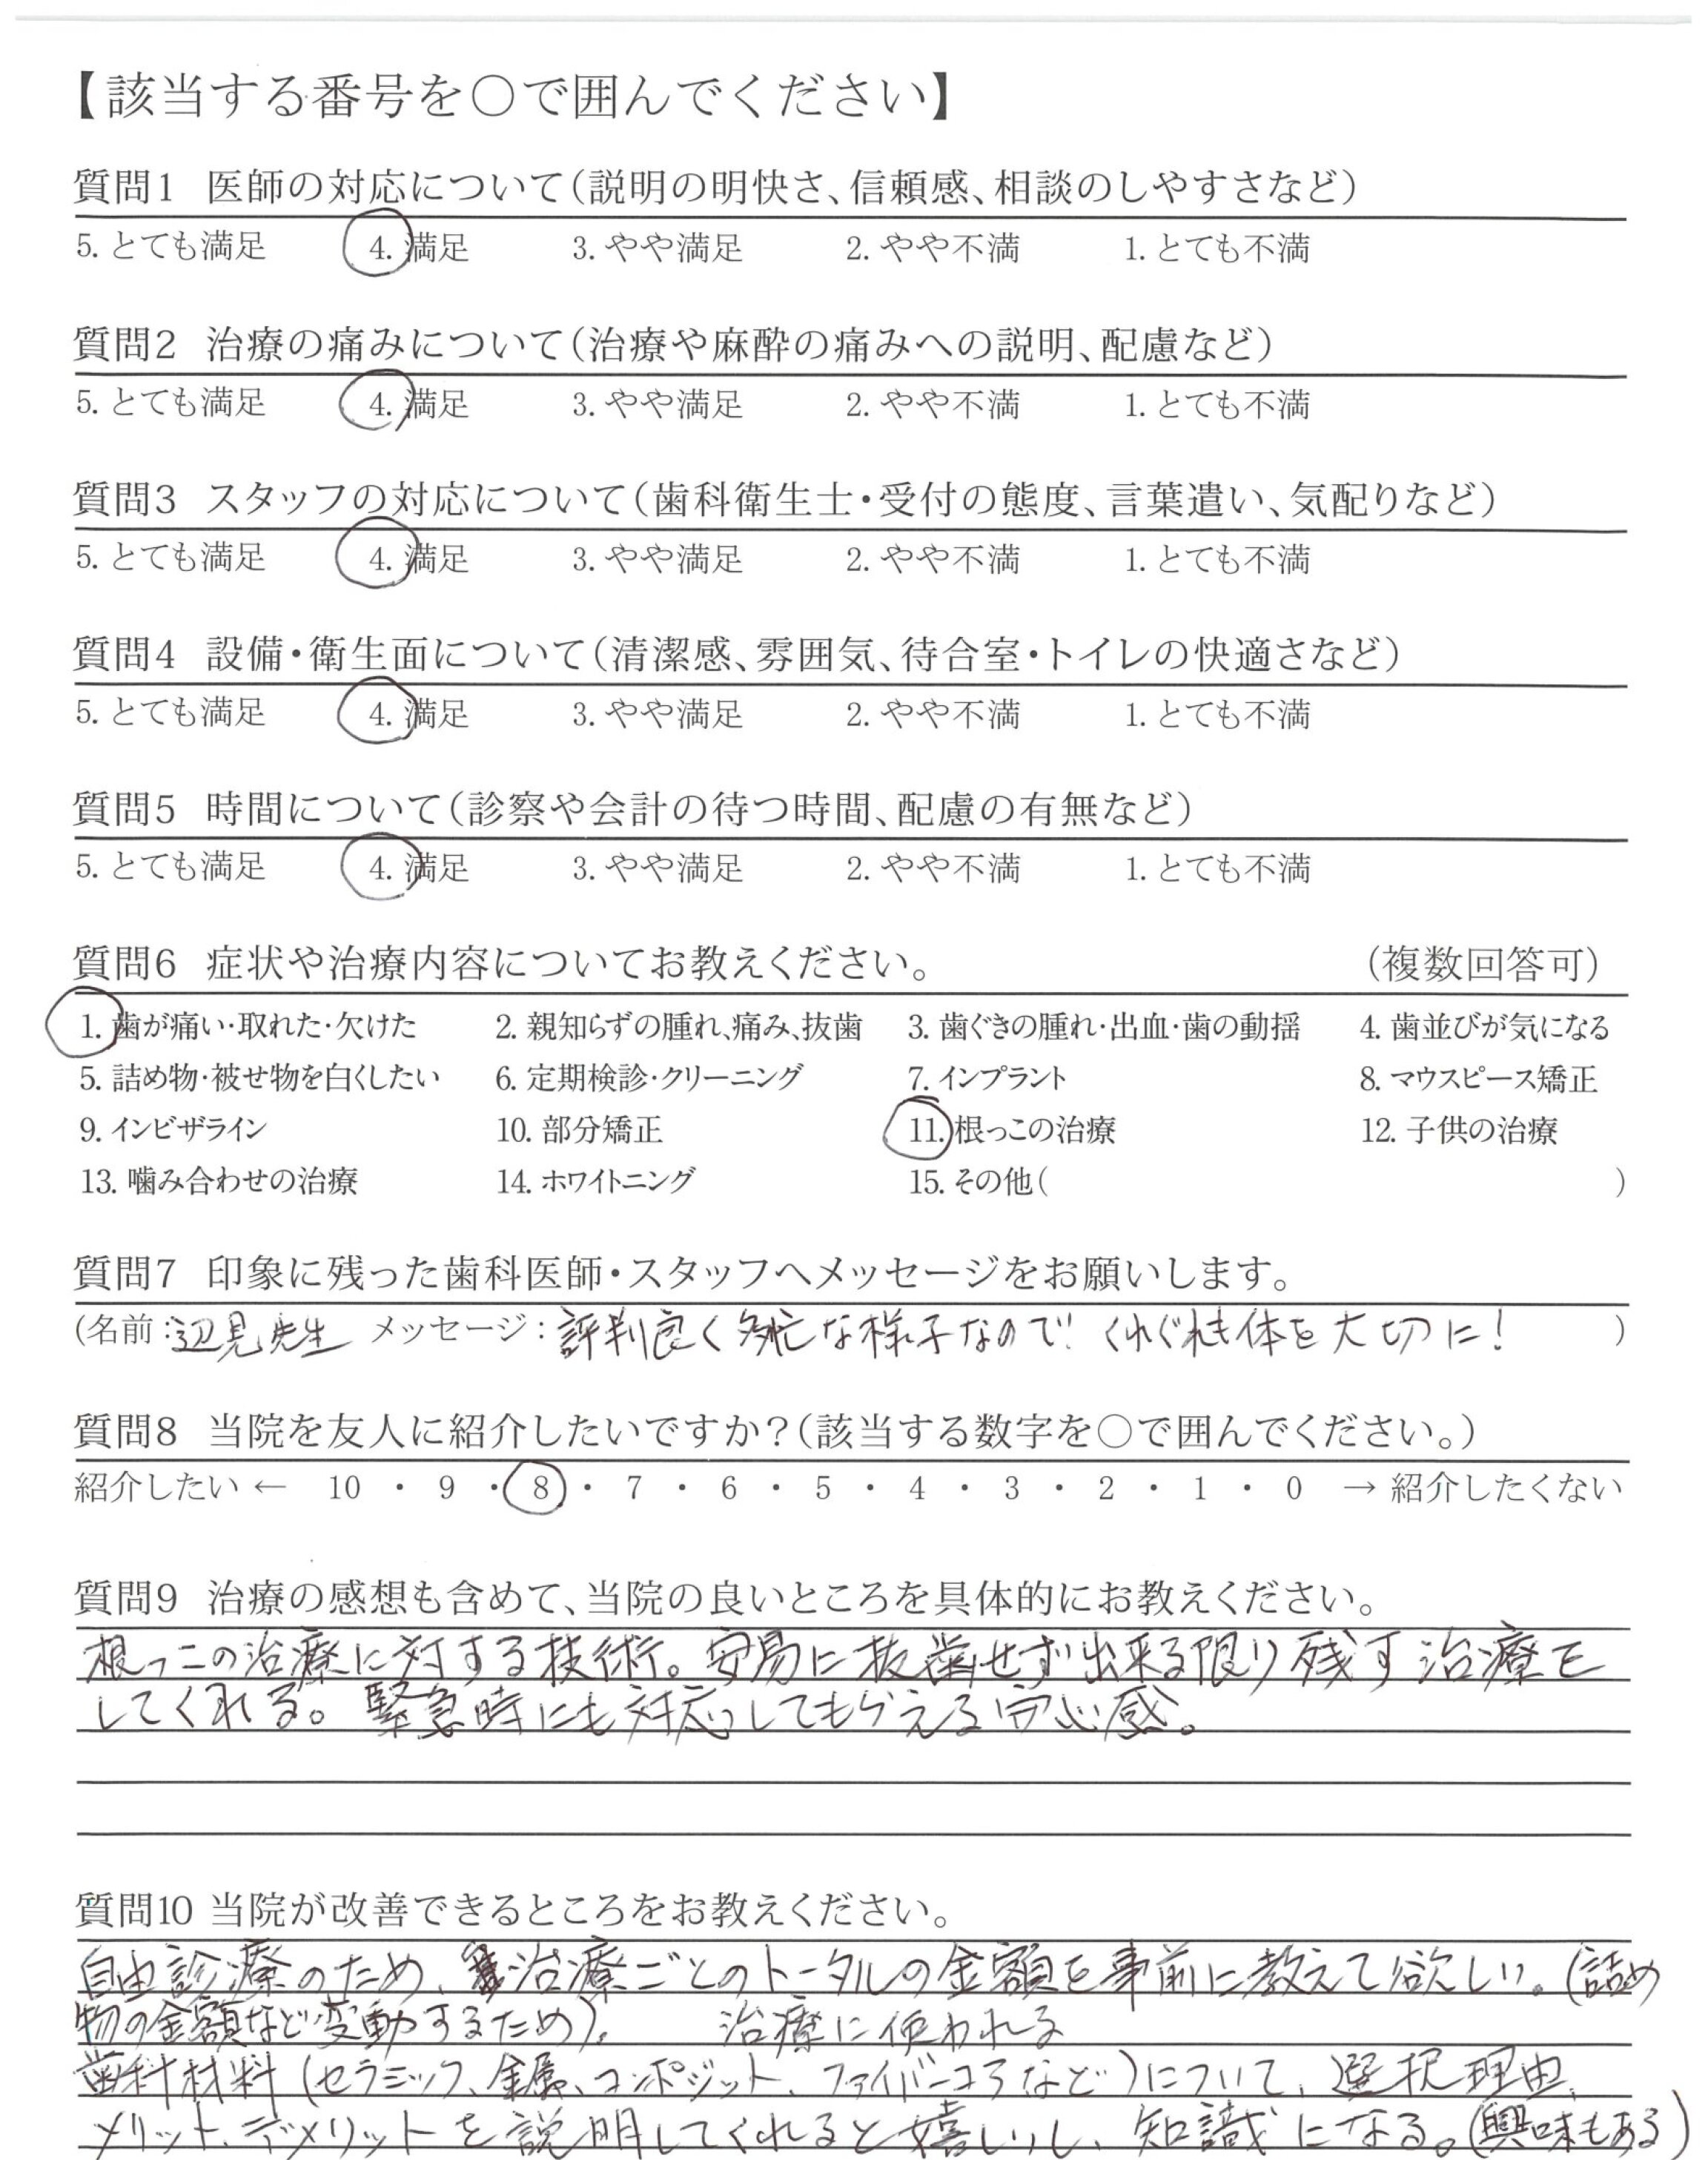 【該当する番号を○で囲んでください】
質問1 医師の対応について(説明の明快さ、信頼感、相談のしやすさなど)
5. とても満足 4. 満足 3. やや満足 2. やや不満 1. とても不満
質問2 治療の痛みについて(治療や麻酔の痛みへの説明、配慮など)
5. とても満足 4. 満足 3. やや満足 2. やや不満 1. とても不満
質問3 スタッフの対応について(歯科衛生士・受付の態度、言葉遣い、気配りなど)
5. とても満足 4. 満足 3. やや満足 2. やや不満 1. とても不満
質問4 設備・衛生面について(清潔感、雰囲気、待合室・トイレの快適さなど)
5. とても満足 4. 満足 3. やや満足 2. やや不満 1. とても不満
質問5 時間について(診察や会計の待つ時間、配慮の有無など)
5. とても満足 4. 満足 3. やや満足 2. やや不満 1. とても不満
質問6 症状や治療内容についてお教えください。 (複数回答可)
1. 歯が痛い・取れた・欠けた 2. 親知らずの腫れ、痛み、抜歯 3. 歯ぐきの腫れ・出血・歯の動揺 4. 歯並びが気になる
5. 詰め物・被せ物を白くしたい 6. 定期検診・クリーニング 7. インプラント 8. マウスピース矯正
9. インビザライン 10. 部分矯正 11. 根っこの治療 12. 子供の治療
13. 噛み合わせの治療 14. ホワイトニング 15. その他( )
質問7 印象に残った歯科医師・スタッフへメッセージをお願いします。
(名前:辺見先生 メッセージ:評判良く多忙な様子なので くれぐれも体を大切に! )
質問8 当院を友人に紹介したいですか?(該当する数字を○で囲んでください。)
紹介したい ← 10 ・ 9 ・ 8 ・ 7 ・ 6 ・ 5 ・ 4 ・ 3 ・ 2 ・ 1 ・ 0 → 紹介したくない
質問9 治療の感想も含めて、当院の良いところを具体的にお教えください。
根っこの治療に対する技術。安易に抜歯せず出来る限り残す治療を
してくれる。緊急時にも対応してもらえる安心感。
質問10 当院が改善できるところをお教えください。
自由診療のため、治療ごとのトータルの金額を事前に教えて欲しい。(詰め
物の金額など変動するため)。 治療に使われる
歯科材料(セラミック、金属、コンポジット、ファイバーコアなど)について、選択理由、
メリット、デメリットを説明してくれると嬉しいし、知識になる。(興味もある)